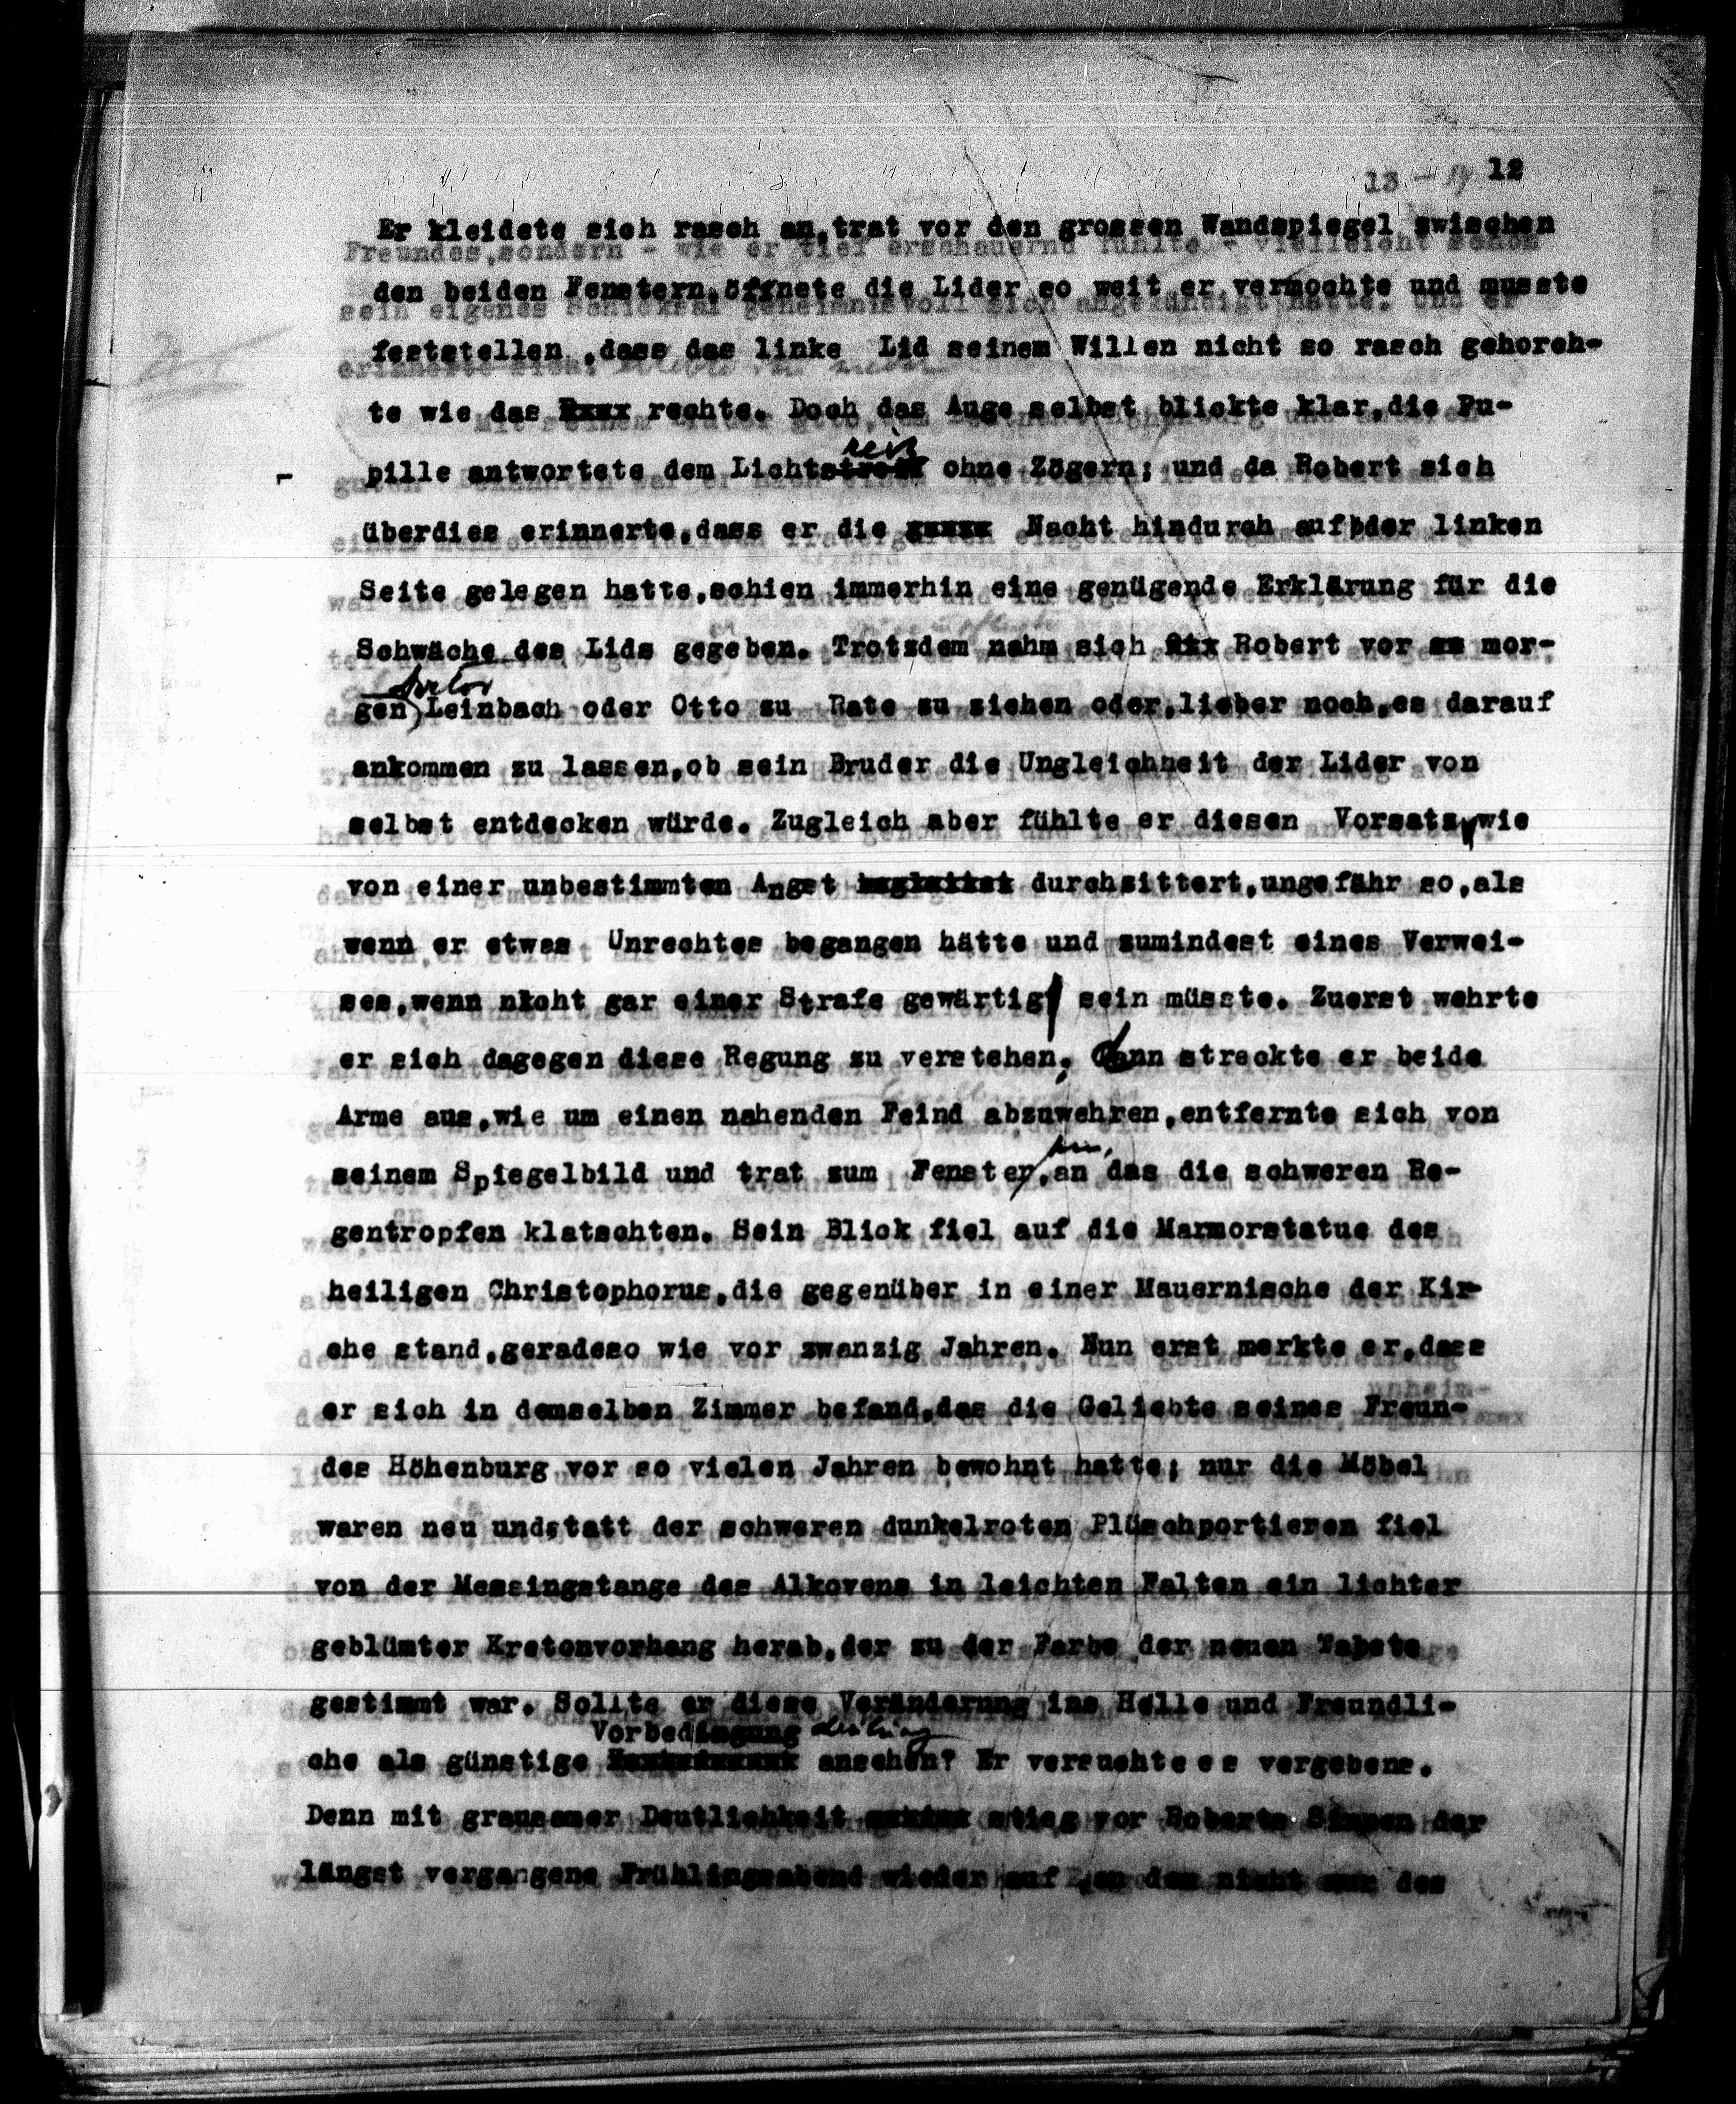 12
Er kleidete sich rasch an,trat vor den grossen Wandspiegel zwischen
den beiden Fenstern,öffnete die Lider so weit er vermochte und musste
feststellen ,dass das linke Lid seinem Willen nicht so rasch gehorch-
te wie das rechte. Doch das Auge selbst blickte klar,die Pu-
reiz
pille antwortete dem Lichtstreif ohne Zögern; und da Robert sich
überdies erinnerte,dass er die Nacht hindurch auf der linken
Seite gelegen hatte,schien immerhin eine genügende Erklärung für die
Schwäche des Lids gegeben. Trotzdem nahm sich Robert vor mor-
gen Leinbach oder Otto zu Rate zu ziehen oder,lieber noch,es darauf
ankommen zu lassen,ob sein Bruder die Ungleichheit der Lider von
selbst entdecken würde. Zugleich aber fühlte er diesen Vorsatz wie
von einer unbestimmten Angst begleitet durchzittert,ungefähr so,als
wenn er etwas Unrechtes begangen hätte und zumindest eines Verwei-
ses,wenn nicht gar einer Strafe gewärtig sein müsste. Zuerst wehrte
er sich dagegen diese Regung zu verstehen, dann streckte er beide
Arme aus,wie um einen nahenden Feind abzuwehren,entfernte sich von
hin,
seinem Spiegelbild und trat zum Fenster,an das die schweren Re-
gentropfen klatschten. Sein Blick fiel auf die Marmorstatue des
heiligen Christophorus,die gegenüber in einer Mauernische der Kir-
che stand,geradeso wie vor zwanzig Jahren. Nun erst merkte er,dass
er sich in demselben Zimmer befand,das die Geliebte seines Freun-
des Höhenburg vor so vielen Jahren bewohnt hatte; nur die Möbel
waren neu undstatt der schweren dunkelroten Plüschportieren fiel
von der Messingstange des Alkovens in leichten Falten ein lichter
geblümter Kretonvorhang herab,der zu der Farbe der neuen Tapete
gestimmt war. Sollte er diese Veränderung ins Helle und Freundli-
Vorbedingung
che als günstige ansehen? Er versuchte es vergebens.
Denn mit grausamer Deutlichkeit stieg vor Roberts Sinnen der
längst vergangene Frühlingsabend wieder auf ,an dem nicht nur des